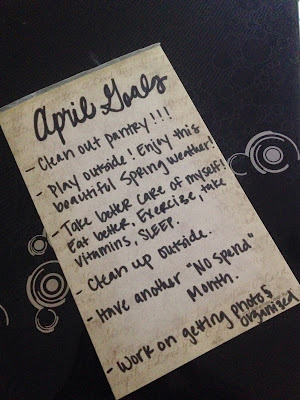 April Goals
- Clean out pantry!!!
- Play outside! Enjoy this
beautiful Spring weather!
- Take better care of myself!
Eat better, Exercise, take
vitamins, SLEEP.
- Clean up outside.
- Have another "No Spend"
Month.
- Work on getting photos
organized